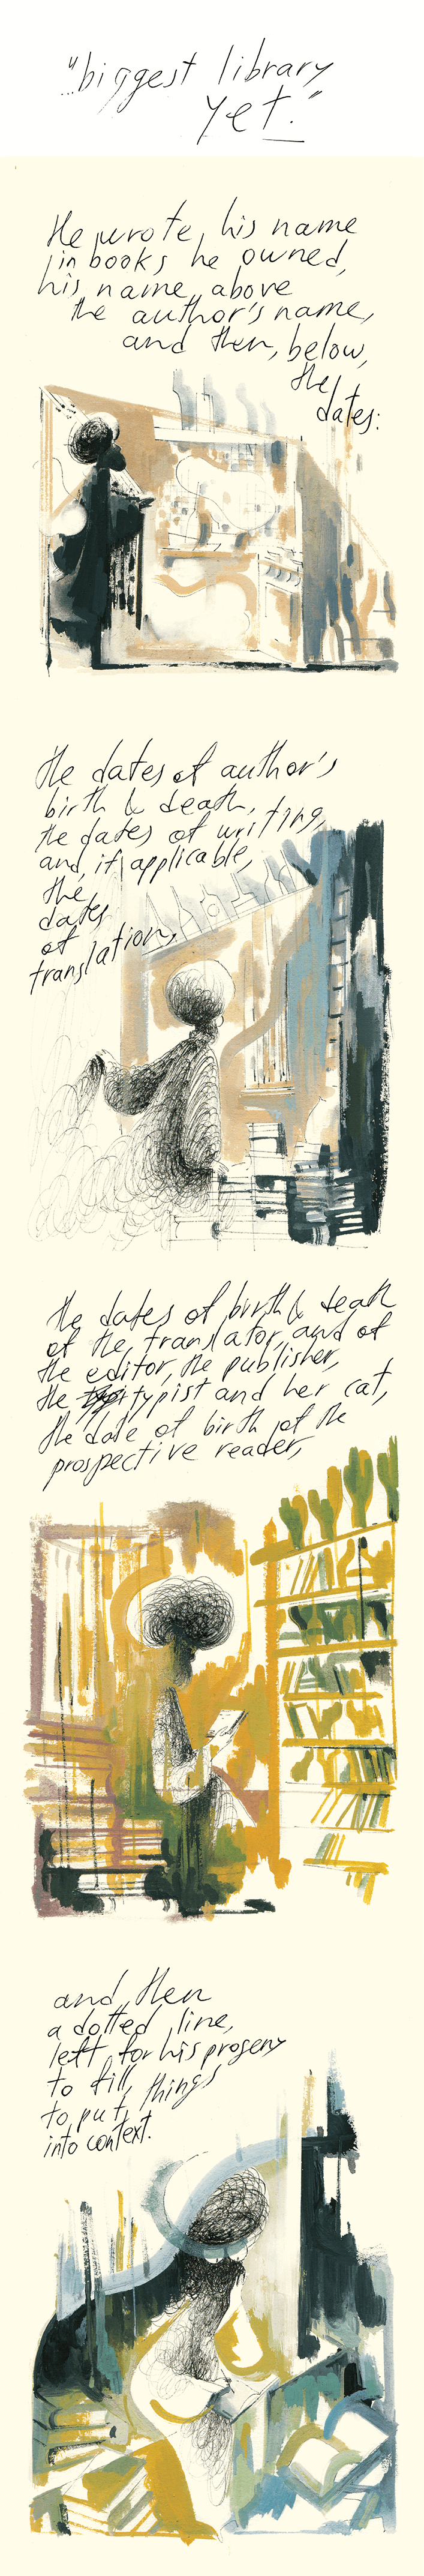 "biggest library
yet."
He wrote his name
in books he owned,
his name above
the author's name,
and then, below,
the
dates:
the dates of author's
birth & death,
the dates of writing,
and, if applicable,
the
dates
of
translation,
the dates of birth & death
of the translator, and of
the editor, the publisher,
the typist and her cat,
the date of birth of the
prospective reader,
and then
a dotted line,
left for his progeny
to fill, things
to put
into context.